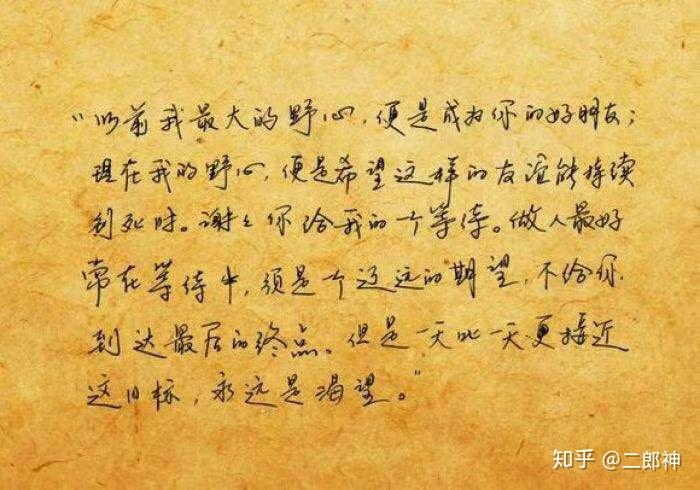 “以前我最大的野心，便是成为你的好朋友；
现在我的野心，便是希望这样的友谊能持续
到死时。谢谢你给我的一个等待。做人最好
常在等待中，须是个辽远的期望，不给你
到达最后的终点、但是一天比一天更接近
这目标，永远是渴望。”
知乎 @二郎神